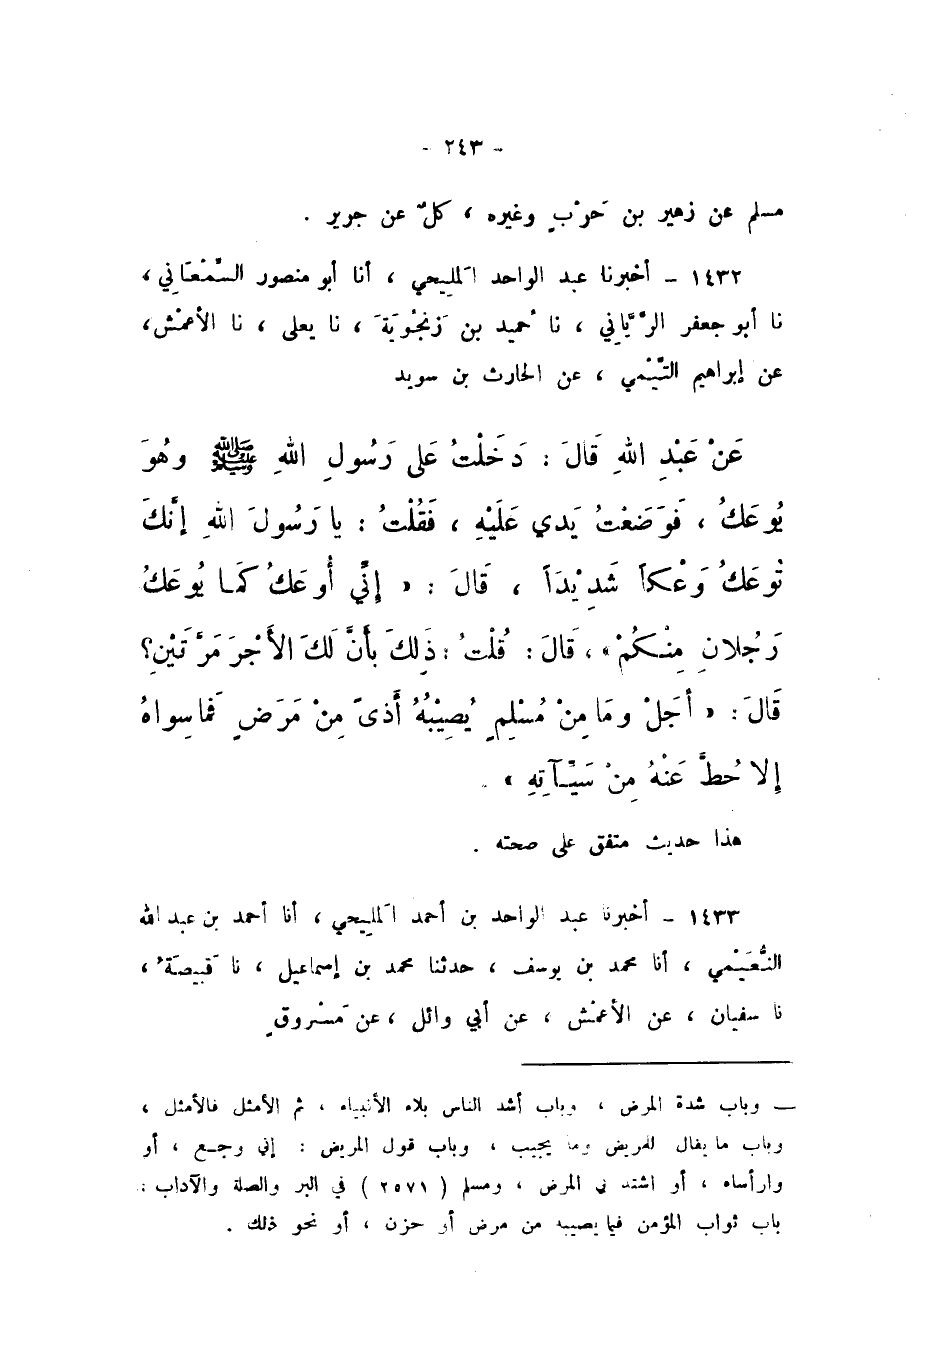 - ٢٤٣ -
مسلم عن زهير بن حَرْبٍ وغيره ، كلٌّ عن جرير .
١٤٣٢ - أخبرنا عبد الواحد المَليحي ، أنا أبو منصور السَّمْعَاني ،
نا أبو جعفر الرَّيَّاني ، نا حُميد بن زَنجُويَةَ ، نا يعلى ، نا الأعمَش ،
عن إبراهيم التَّيْمي ، عن الحارث بن سويد
عَنْ عَبْدِ اللهِ قَالَ : دَخَلْتُ عَلى رَسُولِ اللهِ ﷺ وهُوَ
يُوعَكُ ، فَوَضَعْتُ يَدي عَلَيْهِ ، فَقُلْتُ : يا رَسُولَ اللهِ إنَّكَ
تُوعَكُ وَعْكاً شَدِيْدَاً ، قَالَ : « إنِّي أُوعَكُ كَمَا يُوعَكُ
رَجُلانِ مِنْكُمْ » ، قَالَ : قُلْتُ : ذَلِكَ بأنَّ لَكَ الأَجْرَ مَرَّتَيْنِ ؟
قَالَ : « أجَلْ ومَا مِنْ مُسْلِمٍ يُصِيْبُهُ أَذىً مِنْ مَرَضٍ فَما سِواهُ
إلا حُطَّ عَنْهُ مِنْ سَيِّآتِهِ » .
هذا حديث متفق على صحته .
١٤٣٣ - أخبرنا عبد الواحد بن أحمد المَليحي ، أنا أحمد بن عبد الله
النُّعَيْمي ، أنا محمد بن يوسف ، حدثنا محمد بن إسماعيل ، نا قَبيصَةُ ،
نا سفيان ، عن الأعمَش ، عن أبي وائل ، عن مَسْروقٍ
— وباب شدة المرض ، وباب أشد الناس بلاء الأنبياء ، ثم الأمثل فالأمثل ،
وباب ما يقال للمريض وما يجيب ، وباب قول المريض : إني وجع ، أو
وارأساه ، أو اشتد بي المرض ، ومسلم ( ٢٥٧١ ) في البر والصلة والآداب :
باب ثواب المؤمن فيما يصيبه من مرض أو حزن ، أو نحو ذلك .